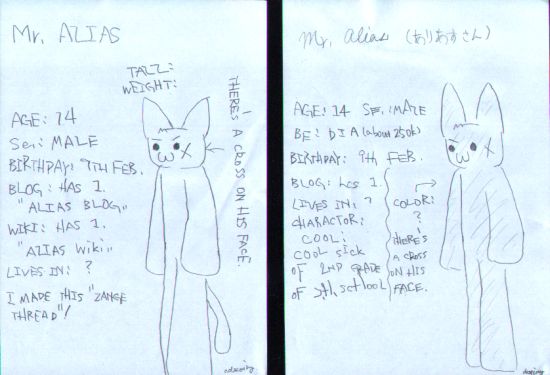 Mr, ALIAS
TALL:
WEIGHT:
THERE'S A CROSS ON HIS FACE.
AGE: 14
Sex: MALE
BIRTHDAY: 9TH FEB.
BLOG: HAS 1.
"ALIAS BLOG"
WIKI: HAS 1.
"ALIAS Wiki"
LIVES IN: ?
I MADE THIS "ZANGE
THREAD"!
Mr, alias (ありあすさん)
AGE: 14 SEX: MALE
BF: DIA (about 250k)
BIRTHDAY: 9th FEB.
BLOG: has 1.
LIVES IN: ?
CHARACTOR:
COOL;
COOL SICK
OF 2ND GRADE
OF SCHOOL
COLOR:
?
THERE'S
A CROSS
ON HIS
FACE.